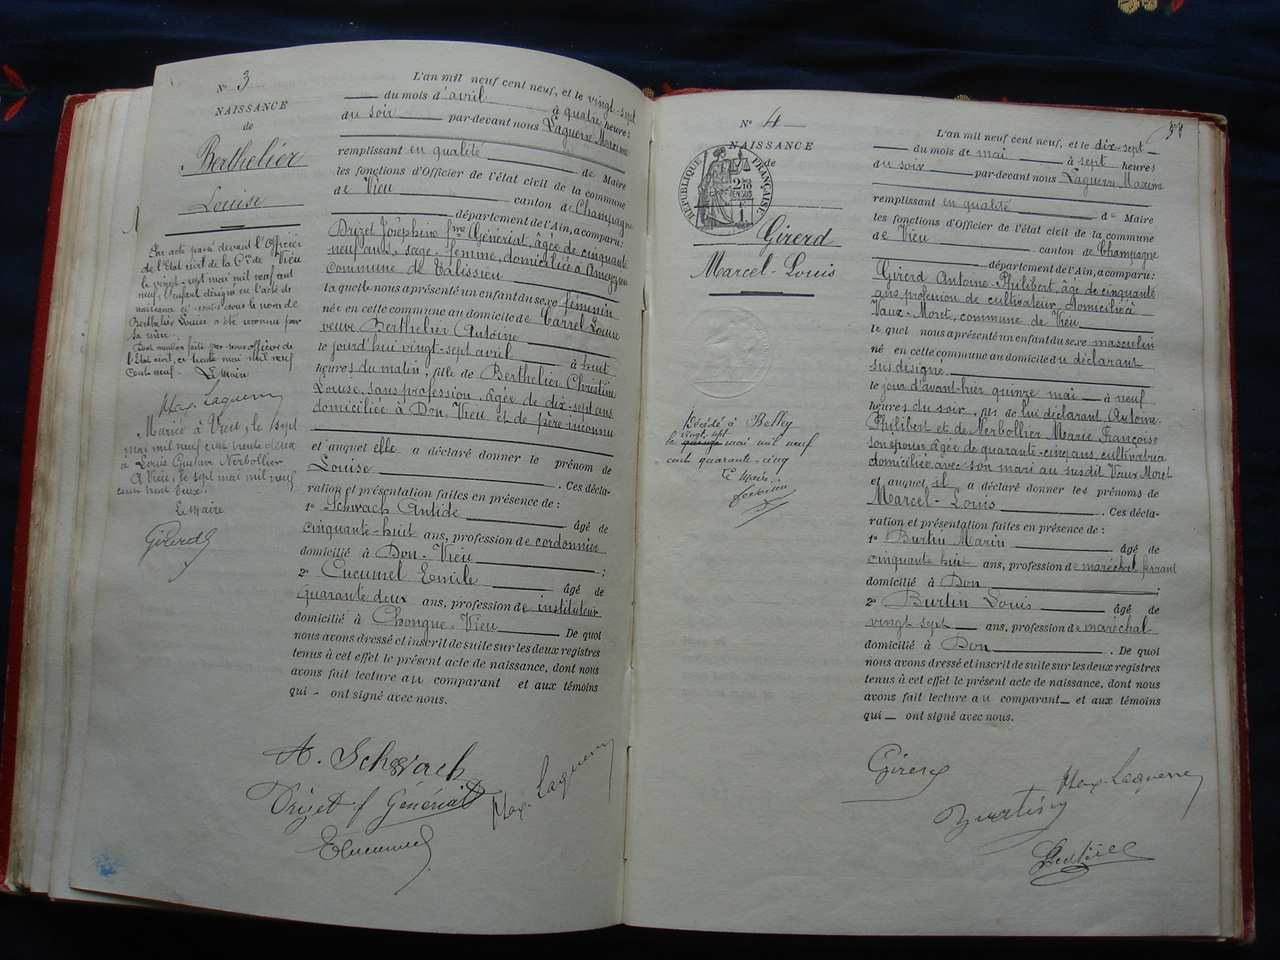 N° 3
NAISSANCE
de
Berthelier
Louise
Par acte passé devant l'Officier
de l'Etat civil de la Cne de Vieu
le vingt-sept mai mil neuf cent
neuf, l'enfant désigné en l'acte de
naissance ci-contre sous le nom de
Berthelier Louise a été reconnu par
sa mère.
Dont mention faite par nous officier de
l'Etat civil, ce trente mai mil neuf
cent neuf. Le Maire
Max. Laguerre
Mariée à Vieu, le sept
mai mil neuf cent trente deux
à Louis Gustave Nerbollier
A Vieu, le sept mai mil neuf
cent trente deux.
Le Maire
Girerd
L'an mil neuf cent neuf, et le vingt-sept
du mois d'avril à quatre heures
du soir par-devant nous Laguerre Maxime
remplissant en qualité de Maire
les fonctions d'Officier de l'état civil de la commune
de Vieu canton de Champagne
département de l'Ain, a comparu:
Drizet Joséphine fme Génériat, âgée de cinquante
neuf ans, sage-femme, domiciliée à Ameyzieu
commune de Talissieu
laquelle nous a présenté un enfant du sexe féminin
née en cette commune au domicile de Carrel Louise
veuve Berthelier Antoine
le jourd'hui vingt-sept avril à huit
heures du matin, fille de Berthelier Christine
Louise, sans profession, âgée de dix-sept ans
domiciliée à Don, Vieu et de père inconnu
et auquel elle a déclaré donner le prénom de
Louise. Ces décla-
ration et présentation faites en présence de :
1° Schwach Antide âgé de
cinquante-huit ans, profession de cordonnier
domicilié à Don-Vieu ;
2° Cucumel Emile âgé de
quarante deux ans, profession de instituteur
domicilié à Chongne-Vieu De quoi
nous avons dressé et inscrit de suite sur les deux registres
tenus à cet effet le présent acte de naissance, dont nous
avons fait lecture au comparant et aux témoins
qui – ont signé avec nous.
A. Schwach
Drizet f Génériat Max. Laguerre
E Cucumel
N° 4
NAISSANCE
de
RÉPUBLIQUE FRANÇAISE
Girerd
Marcel-Louis
Décédé à Belley
le quinze vingt-sept mai mil neuf
cent quarante-cinq
Le Maire
L'an mil neuf cent neuf, et le dix-sept
du mois de mai à sept heures
du soir par-devant nous Laguerre Maxime
remplissant en qualité de Maire
les fonctions d'Officier de l'état civil de la commune
de Vieu canton de Champagne
département de l'Ain, a comparu:
Girerd Antoine-Philibert, âgé de cinquante
ans, profession de cultivateur, domicilié à
Vaux-Moret, commune de Vieu
lequel nous a présenté un enfant du sexe masculin
né en cette commune au domicile du déclarant
sus désigné
le jour d'avant-hier quinze mai à neuf
heures du soir, fils de lui déclarant Antoine-
Philibert et de Nerbollier Marie Françoise
son épouse âgée de quarante-cinq ans, cultivatrice
domiciliée avec son mari au susdit Vaux Moret
et auquel il a déclaré donner les prénoms de
Marcel-Louis. Ces décla-
ration et présentation faites en présence de :
1° Burtin Marin âgé de
cinquante huit ans, profession de maréchal ferrant
domicilié à Don ;
2° Burtin Louis âgé de
vingt sept ans, profession de maréchal
domicilié à Don. De quoi
nous avons dressé et inscrit de suite sur les deux registres
tenus à cet effet le présent acte de naissance, dont nous
avons fait lecture au comparant et aux témoins
qui – ont signé avec nous.
Girerd
Max. Laguerre
Burtin